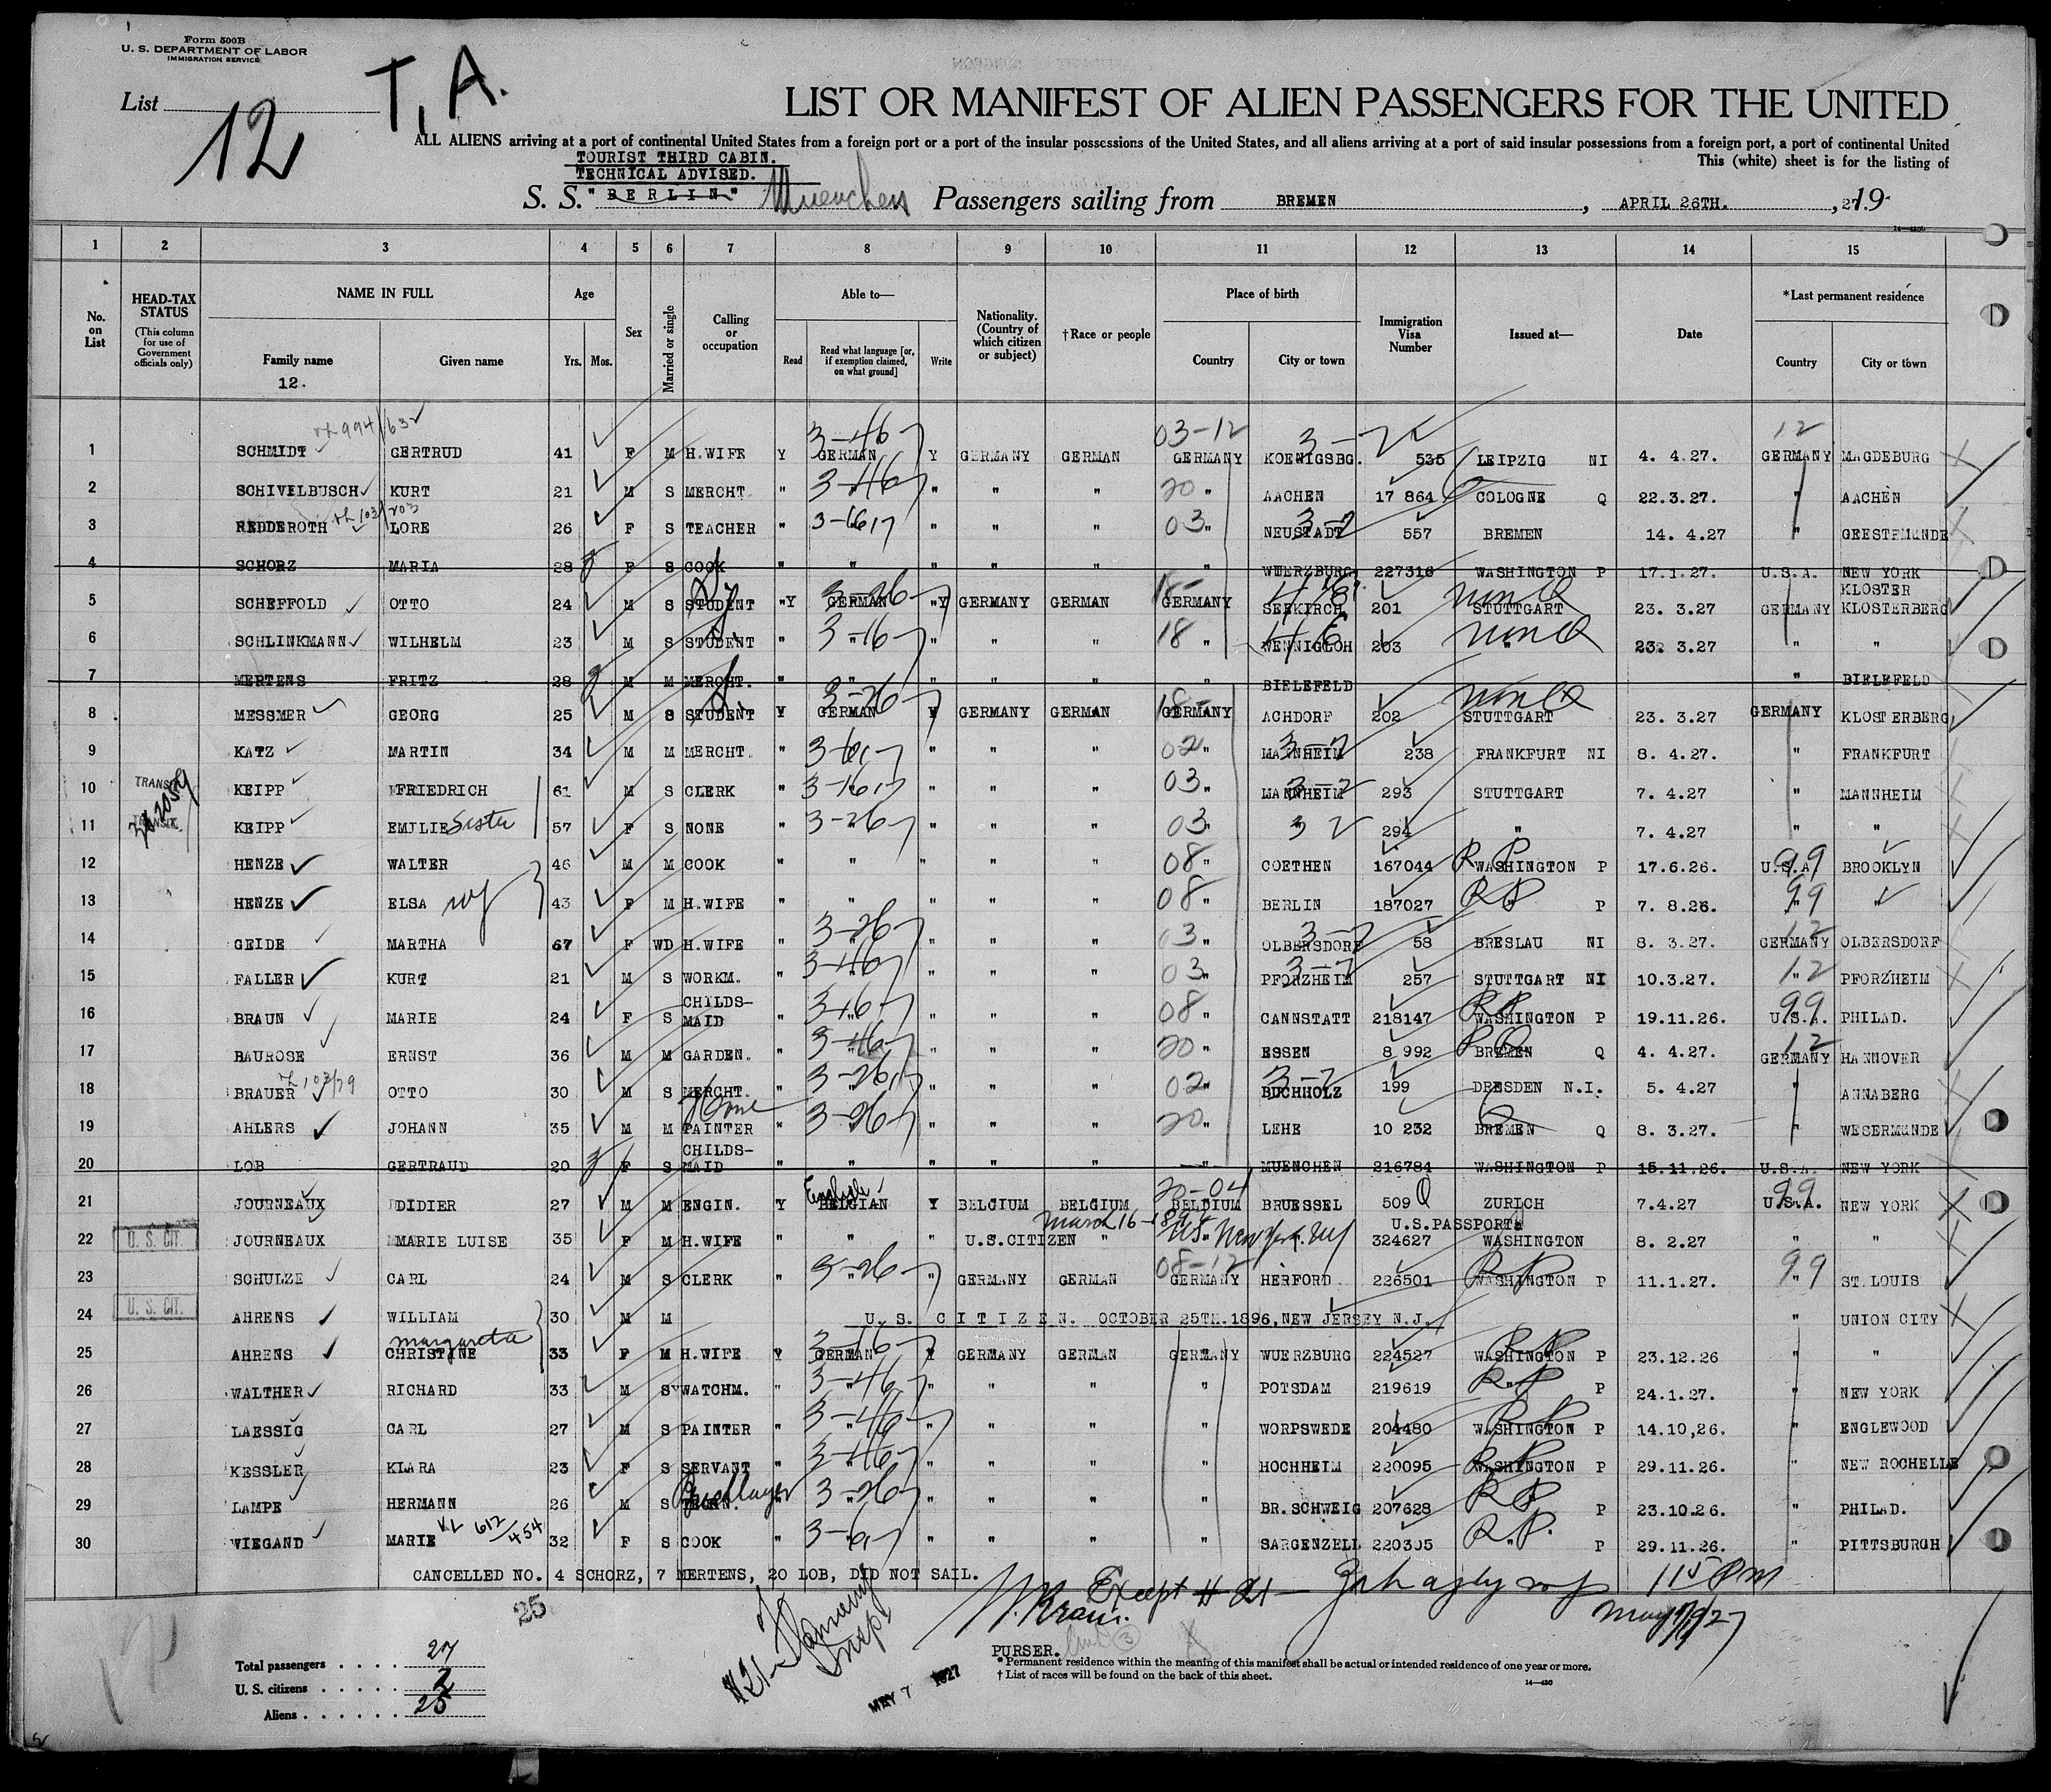 Form 500B
U. S. DEPARTMENT OF LABOR
IMMIGRATION SERVICE
List 12
T. A.
LIST OR MANIFEST OF ALIEN PASSENGERS FOR THE UNITED
ALL ALIENS arriving at a port of continental United States from a foreign port or a port of the insular possessions of the United States, and all aliens arriving at a port of said insular possessions from a foreign port, a port of continental United
This (white) sheet is for the listing of
TOURIST THIRD CABIN.
TECHNICAL ADVISED.
S. S. "BERLIN" Muenchen Passengers sailing from BREMEN, APRIL 26TH., 1927
14—430b
1 2 3 4 5 6 7 8 9 10 11 12 13 14 15
No. on List
HEAD-TAX STATUS (This column for use of Government officials only)
NAME IN FULL Family name Given name
12.
Age Yrs. Mos.
Sex
Married or single
Calling or occupation
Able to— Read Read what language [or, if exemption claimed, on what ground] Write
Nationality. (Country of which citizen or subject)
†Race or people
Place of birth Country City or town
Immigration Visa Number
Issued at—
Date
*Last permanent residence Country City or town
1 SCHMIDT GERTRUD 41 F M H.WIFE Y GERMAN Y GERMANY GERMAN 03-12 GERMANY KOENIGSBG. 535 LEIPZIG NI 4. 4.27. 12 GERMANY MAGDEBURG
2 SCHIVELBUSCH KURT 21 M S MERCHT. " " " " " 20 " AACHEN 17 864 COLOGNE Q 22.3.27. " AACHEN
3 REDDEROTH LORE 26 F S TEACHER " " " " 03 " NEUSTADT 557 BREMEN 14. 4.27 " GEESTEMUNDE
4 SCHORZ MARIA 28 F S COOK " " " " " " WUERZBURG 227316 WASHINGTON P 17.1.27. U.S.A. NEW YORK
5 SCHEFFOLD OTTO 24 M S STUDENT "Y GERMAN "Y GERMANY GERMAN GERMANY SEEKIRCH 201 STUTTGART non Q 23. 3.27 GERMANY KLOSTER KLOSTERBERG
6 SCHLINKMANN WILHELM 23 M S STUDENT " " " " " 18 " WENNIGLOH 203 " non Q 23. 3.27 " "
7 MERTENS FRITZ 28 M M MERCHT. " " " " " " BIELEFELD " BIELEFELD
8 MESSMER GEORG 25 M S STUDENT Y GERMAN Y GERMANY GERMAN GERMANY ACHDORF 202 STUTTGART non Q 23. 3.27 GERMANY KLOSTERBERG
9 KATZ MARTIN 34 M M MERCHT. " " " " 02 " MANNHEIM 238 FRANKFURT NI 8. 4.27. " FRANKFURT
10 TRANSIT KEIPP FRIEDRICH 61 M S CLERK " " " " 03 " MANNHEIM 293 STUTTGART 7. 4.27 " MANNHEIM
11 TRANSIT KEIPP EMILIE Sister 57 F S NONE " " " " 03 " " 294 " 7. 4.27 " "
12 HENZE WALTER 46 M M COOK " " " " " 08 " COETHEN 167044 WASHINGTON P 17.6.26. 99 U.S.A. BROOKLYN
13 HENZE ELSA 43 F M H.WIFE " " " " " 08 " BERLIN 187027 " P 7. 8.26. 99 " "
14 GEIDE MARTHA 67 F WD H.WIFE " " " " " 03 " OLBERSDORF 58 BRESLAU NI 8. 3.27. 12 GERMANY OLBERSDORF
15 FALLER KURT 21 M S WORKM. " " " " " 03 " PFORZHEIM 257 STUTTGART NI 10.3.27. 12 " PFORZHEIM
16 BRAUN MARIE 24 F S CHILDS-MAID " " " " " 08 " CANNSTATT 218147 WASHINGTON P 19.11.26. 99 U.S.A. PHILAD.
17 BAUROSE ERNST 36 M M GARDEN. " " " " " 20 " ESSEN 8 992 BREMEN Q 4. 4.27. 12 GERMANY HANNOVER
18 BRAUER OTTO 30 M S MERCHT. " " " " " 02 " BUCHHOLZ 199 DRESDEN N.I. 5. 4.27 " ANNABERG
19 AHLERS JOHANN 35 M M PAINTER " " " " " 20 " LEHE 10 232 BREMEN Q 8. 3.27. " WESERMUNDE
20 LOB GERTRAUD 20 F S CHILDS-MAID " " " " " " MUENCHEN 216784 WASHINGTON P 15.11.26. U.S.A. NEW YORK
21 JOURNEAUX DIDIER 27 M M ENGIN. Y English BELGIAN Y BELGIUM BELGIUM 20-04 BELGIUM BRUESSEL 509 Q ZURICH 7.4.27 99 U.S.A. NEW YORK
22 U. S. CIT. JOURNEAUX MARIE LUISE 35 F M H.WIFE " " " U.S.CITIZEN " March 16- U.S. New York. NY U.S.PASSPORT 324627 WASHINGTON 8. 2.27 " "
23 SCHULZE CARL 24 M S CLERK " " " GERMANY GERMAN 08-12 GERMANY HERFORD 226501 WASHINGTON P 11.1.27. 99 " ST.LOUIS
24 U. S. CIT. AHRENS WILLIAM 30 M M U. S. CITIZEN. OCTOBER 25TH.1896, NEW JERSEY N.J. " UNION CITY
25 AHRENS CHRISTINE Margareta 33 F M H.WIFE Y GERMAN Y GERMANY GERMAN GERMANY WUERZBURG 224527 WASHINGTON P 23.12.26 " "
26 WALTHER RICHARD 33 M S WATCHM. " " " " " " POTSDAM 219619 " P 24.1.27. " NEW YORK
27 LAESSIG CARL 27 M S PAINTER " " " " " " WORPSWEDE 204480 WASHINGTON P 14.10,26. " ENGLEWOOD
28 KESSLER KLARA 23 F S SERVANT " " " " " " HOCHHEIM 220095 WASHINGTON P 29.11.26. " NEW ROCHELLE
29 LAMPE HERMANN 26 M S " " " " " " BR.SCHWEIG 207628 " P 23.10.26. " PHILAD.
30 WIEGAND MARIE 32 F S COOK " " " " " " SARGENZELL 220305 " P 29.11.26. " PITTSBURGH
CANCELLED NO. 4 SCHORZ, 7 MERTENS, 20 LOB, DID NOT SAIL.
25
Except # 21
115 PM
May 7/1927
PURSER.
MAY 7 1927
Total passengers . . . . 27
U. S. citizens . . . . . 2
Aliens . . . . . . 25
* Permanent residence within the meaning of this manifest shall be actual or intended residence of one year or more.
† List of races will be found on the back of this sheet.
14—430